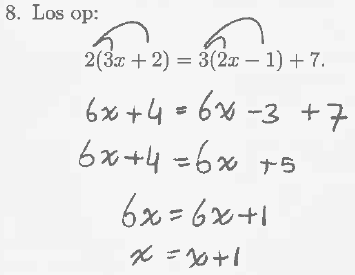 8. Los op:
2(3x + 2) = 3(2x − 1) + 7.
6x + 4 = 6x − 3 + 7
6x + 4 = 6x + 5
6x = 6x + 1
x = x + 1